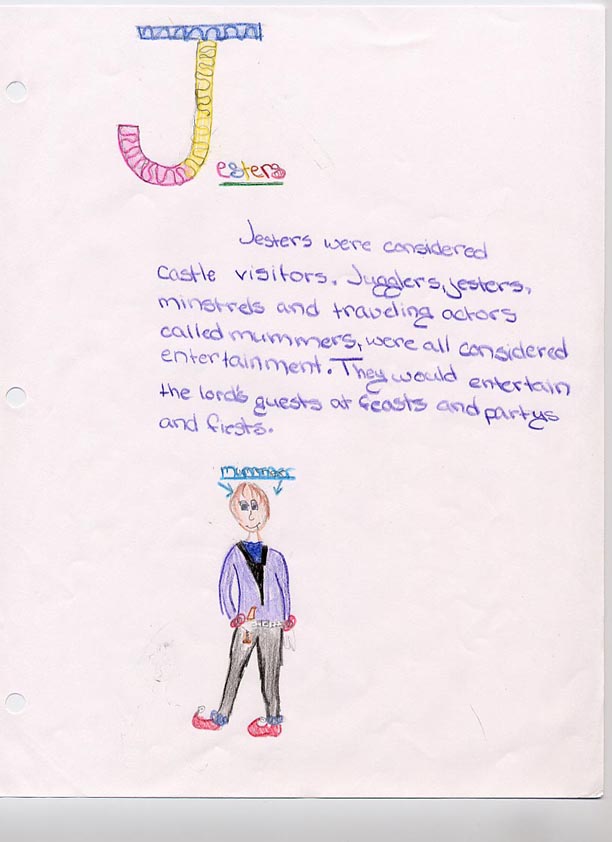 Jesters
Jesters were considered
castle visitors. Jugglers, jesters,
minstrels and traveling actors
called mummers, were all considered
entertainment. They would entertain
the lord's guests at feasts and partys
and fiests.
mummer